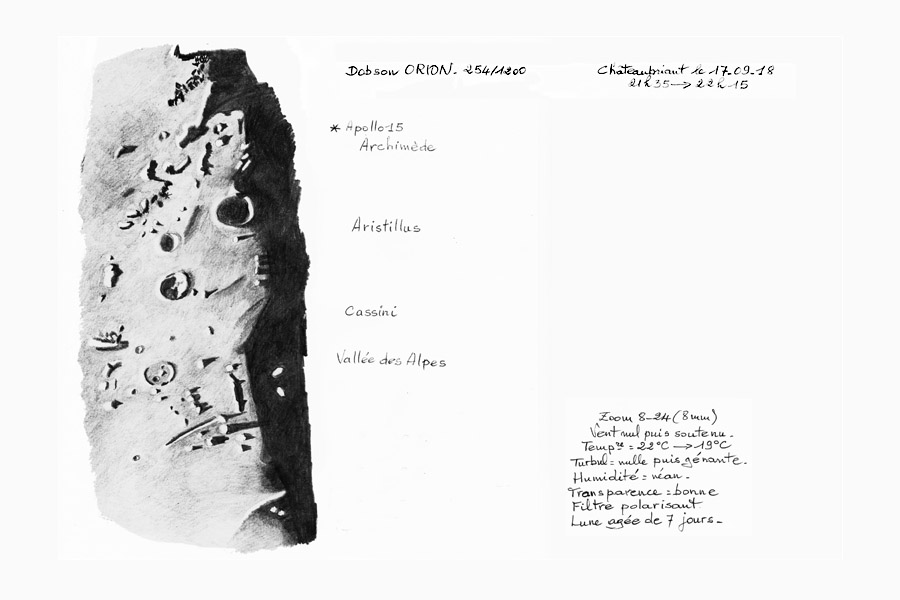 Dobson ORION. 254/1200
Chateaubriant le 17.09.18
21h35 → 22h15
* Apollo15
Archimède
Aristillus
Cassini
Vallée des Alpes
Zoom 8-24 (8mm)
Vent nul puis soutenu.
Temp^re = 22°C → 19°C
Turbul = nulle puis gênante.
Humidité = néan.
Transparence = bonne
Filtre polarisant
Lune agée de 7 jours.